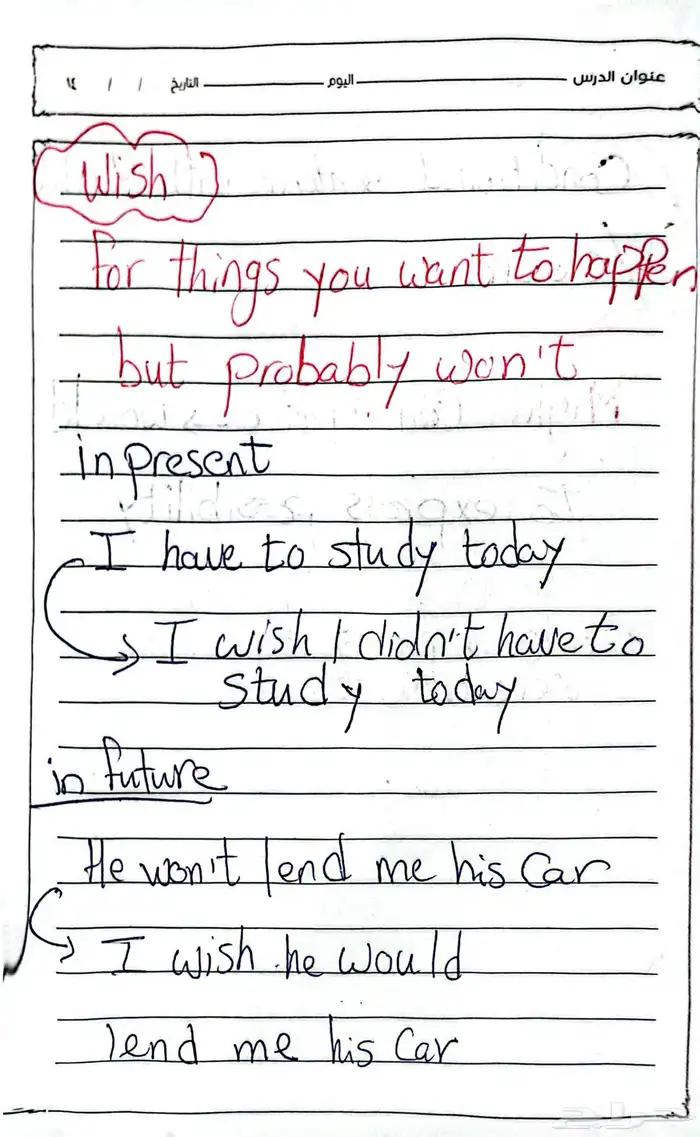 عنوان الدرس اليوم التاريخ / / ١٤
Wish
for things you want to happen
but probably won't
in present
I have to study today
I wish I didn't have to
study today
in future
He won't lend me his car
I wish he would
lend me his car
حراج